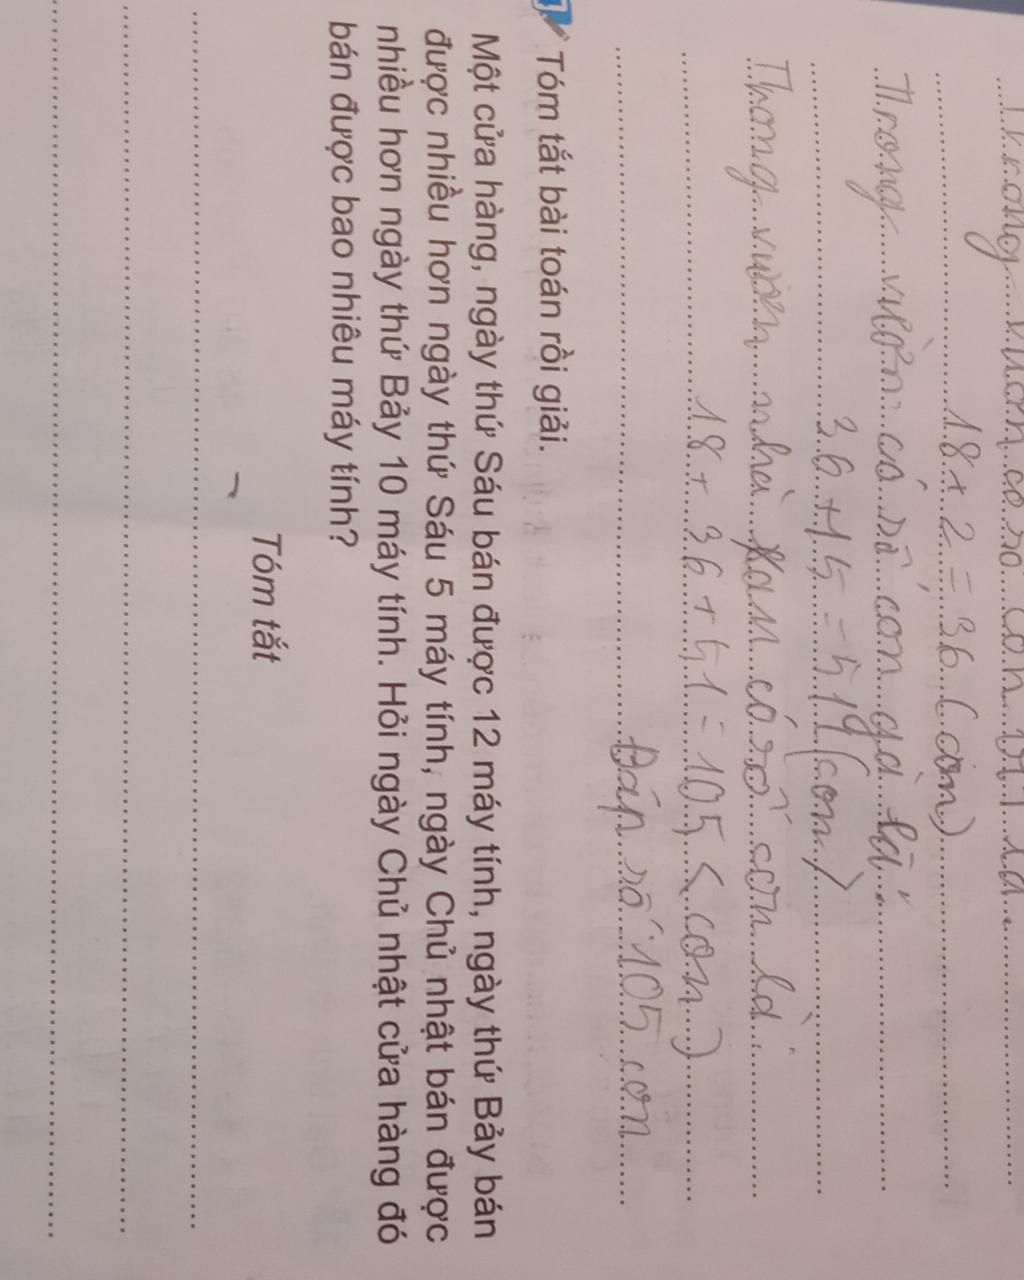 Trong vườn có số con vịt là
18 x 2 = 36 (con)
Trong vườn có số con gà là
36 + 15 = 51 (con)
Trong vườn nhà Nam có số con là
18 + 36 + 51 = 105 (con)
Đáp số 105 con
Tóm tắt bài toán rồi giải.
Một cửa hàng, ngày thứ Sáu bán được 12 máy tính, ngày thứ Bảy bán
được nhiều hơn ngày thứ Sáu 5 máy tính, ngày Chủ nhật bán được
nhiều hơn ngày thứ Bảy 10 máy tính. Hỏi ngày Chủ nhật cửa hàng đó
bán được bao nhiêu máy tính?
Tóm tắt